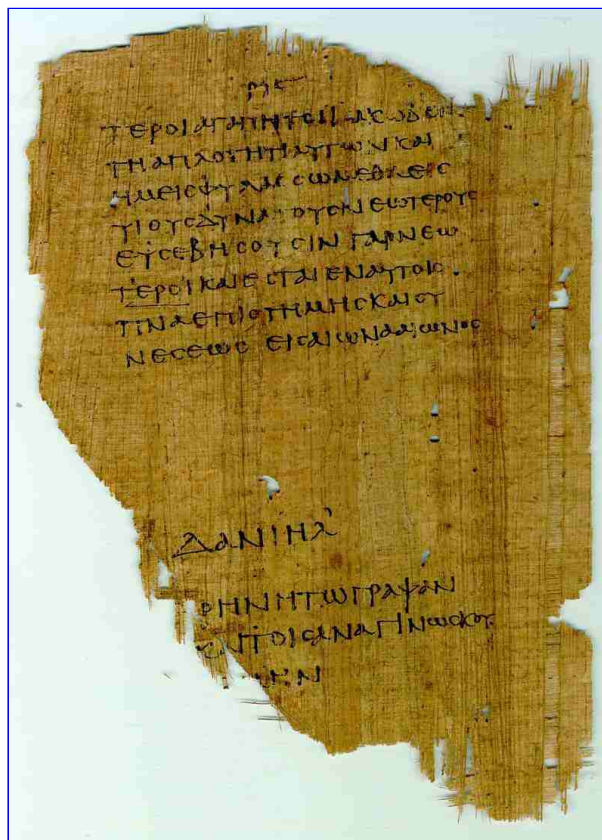 ρϟϛ
ΤΕΡΟΙΑΓΑΠΗΤΟΙΙΑΚΩΒΕΝ
ΤΗΑΠΛΟΤΗΤΙΑΥΤΩΝΚΑΙ
ΗΜΕΙϹΦΥΛΑϹϹΩΜΕΘΑΕΙϹ
ΥΙΟΥϹΔΥΝΑΤΟΥϹΝΕΩΤΕΡΟΥϹ
ΕΥϹΕΒΗϹΟΥϹΙΝΓΑΡΝΕΩ
ΤΕΡΟΙΚΑΙΕϹΤΑΙΕΝΑΥΤΟΙϹ
ΠΝΑΕΠΙϹΤΗΜΗϹΚΑΙϹΥ
ΝΕϹΕΩϹ ΕΙϹΑΙΩΝΑΑΙΩΝΟϹ
ΔΑΝΙΗΛ
ΡΗΝΗΤΩΓΡΑΨΑΝ
ΚΑΙΤΟΙϹΑΝΑΓΙΝΩϹΚΟΥ